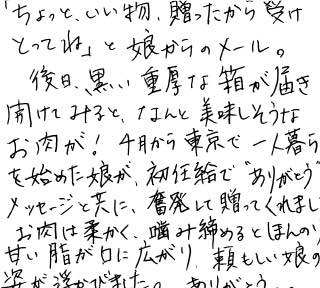 「ちょっと、いい物、贈ったから受け
とってね」と娘からのメール。
後日、黒い重厚な箱が届き
開けてみると、なんと美味しそうな
お肉が！4月から東京で一人暮ら
を始めた娘が、初任給で“ありがとう”
メッセージと共に、奮発して贈ってくれまし
お肉は柔かく、噛み締めるとほんのり
甘い脂が口に広がり、頼もしい娘の
姿が浮かびました。ありがとう